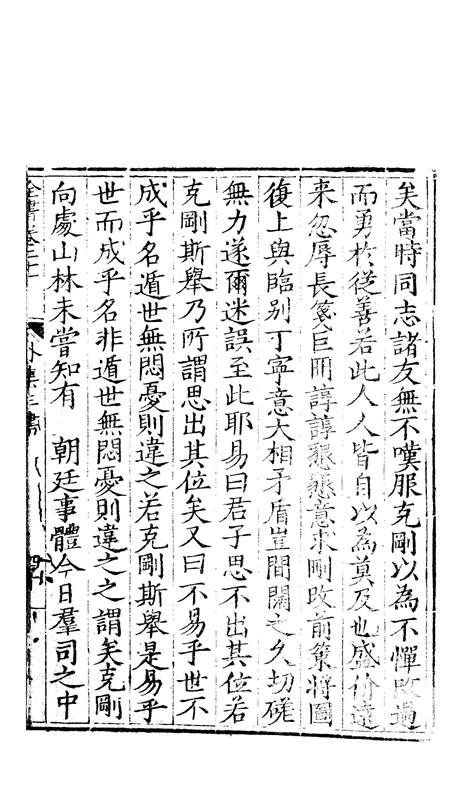 矣當時同志諸友無不嘆服克剛以為不憚改過
而勇於從善若此人人皆自以為莫及也盛价遠
来忽辱長箋巨冊諄諄懇懇意求剛改前策將圖
復上與臨别丁寧意大相矛盾豈間闊之久切磋
無力遂爾迷誤至此耶易曰君子思不出其位若
克剛斯舉乃所謂思出其位矣又曰不易乎世不
成乎名遁世無悶憂則違之若克剛斯舉是易乎
世而成乎名非遁世無悶憂則違之之謂矣克剛
向處山林未嘗知有　朝廷事體今日羣司之中
全書卷二十 外集三 書